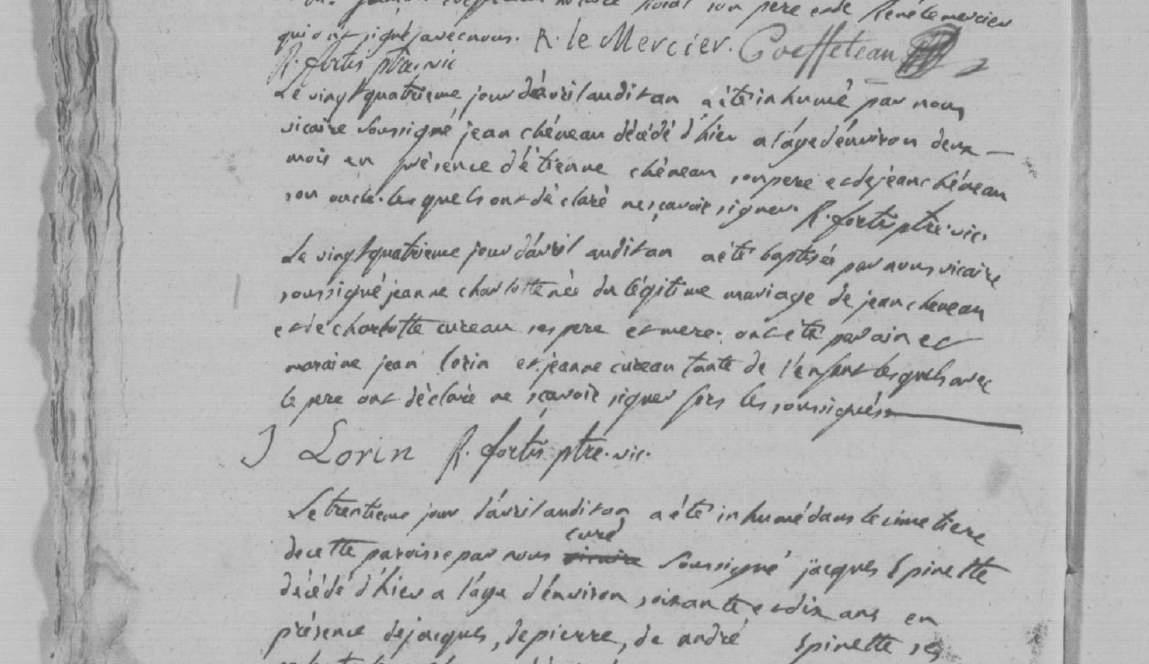 notaire Roial son pere et de René le mercier
qui ont signé avec nous. R. le Mercier. Coeffeteau
R. fortis ptre. vic
Le vingt quatrieme jour d'avril audit an a été inhumé par nous
vicaire soussigné jean chéneau décédé d'hier a l'age d'environ deux
mois en présence d'étienne chéneau son pere et de jean chéneau
son oncle. les quels ont déclaré ne sçavoir signer. R. fortis ptre. vic.
Le vingt quatrieme jour d'avril audit an a été baptisée par nous vicaire
soussigné jeanne charlotte née du légitime mariage de jean cheneau
et de charlotte cureau ses pere et mere. ont été parain et
maraine jean lorin et jeanne cureau tante de l'enfant lesquels avec
le pere ont déclaré ne sçavoir signer fors les soussignés
J Lorin R. fortis ptre. vic.
Le trentieme jour d'avril audit an a été inhumé dans le cimetiere
curé
de cette paroisse par nous vicaire soussigné jacques Spinette
décédé d'hier a l'age d'environ soixante et dix ans en
présence de jacques, de pierre, de andré Spinette ses